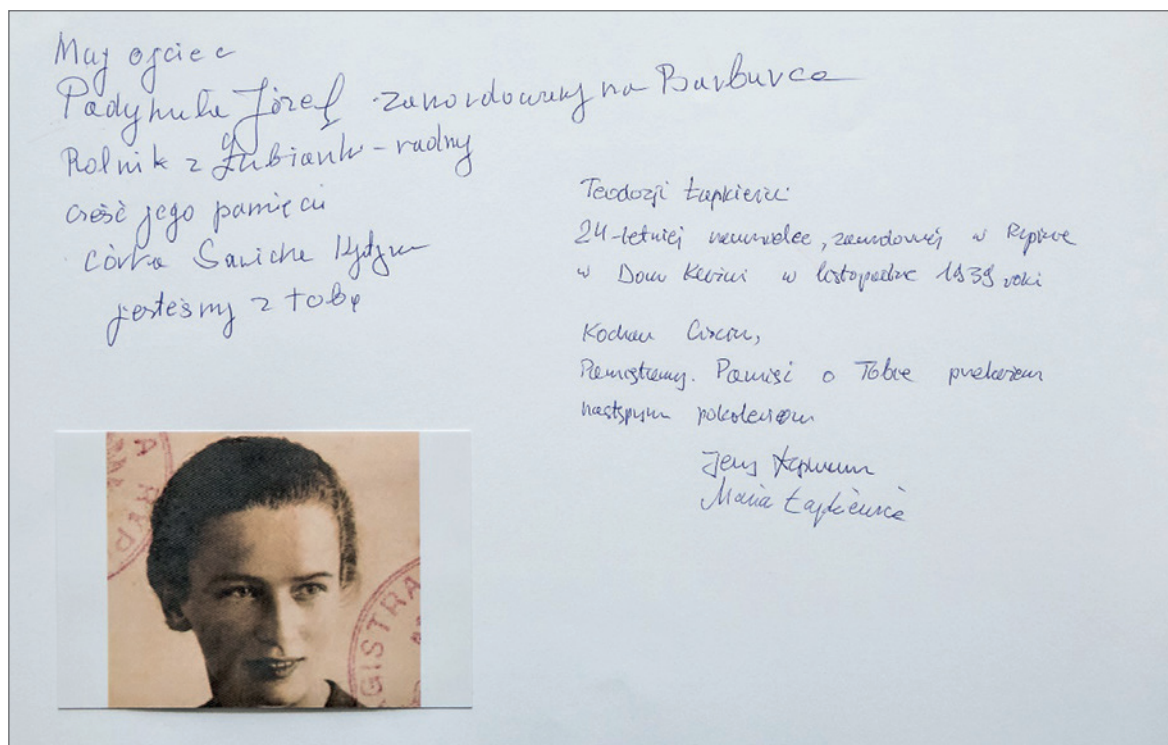 Muj ojciec
Padykuła Józef zamordowany na Barburce
Rolnik z Łubianki - radny
cześć jego pamięcii
córka
jesteśmy z tobą
Teodozji Łapkiewicz
24-letniej nauczycielce, zamordowanej w Rypinie
w Domu Kaźni w listopadzie 1939 roku
Kochana Ciociu,
Pamiętamy. Pamięć o Tobie przekażemy
następnym pokoleniom
Jerzy
Maria Łapkiewicz
GISTRA